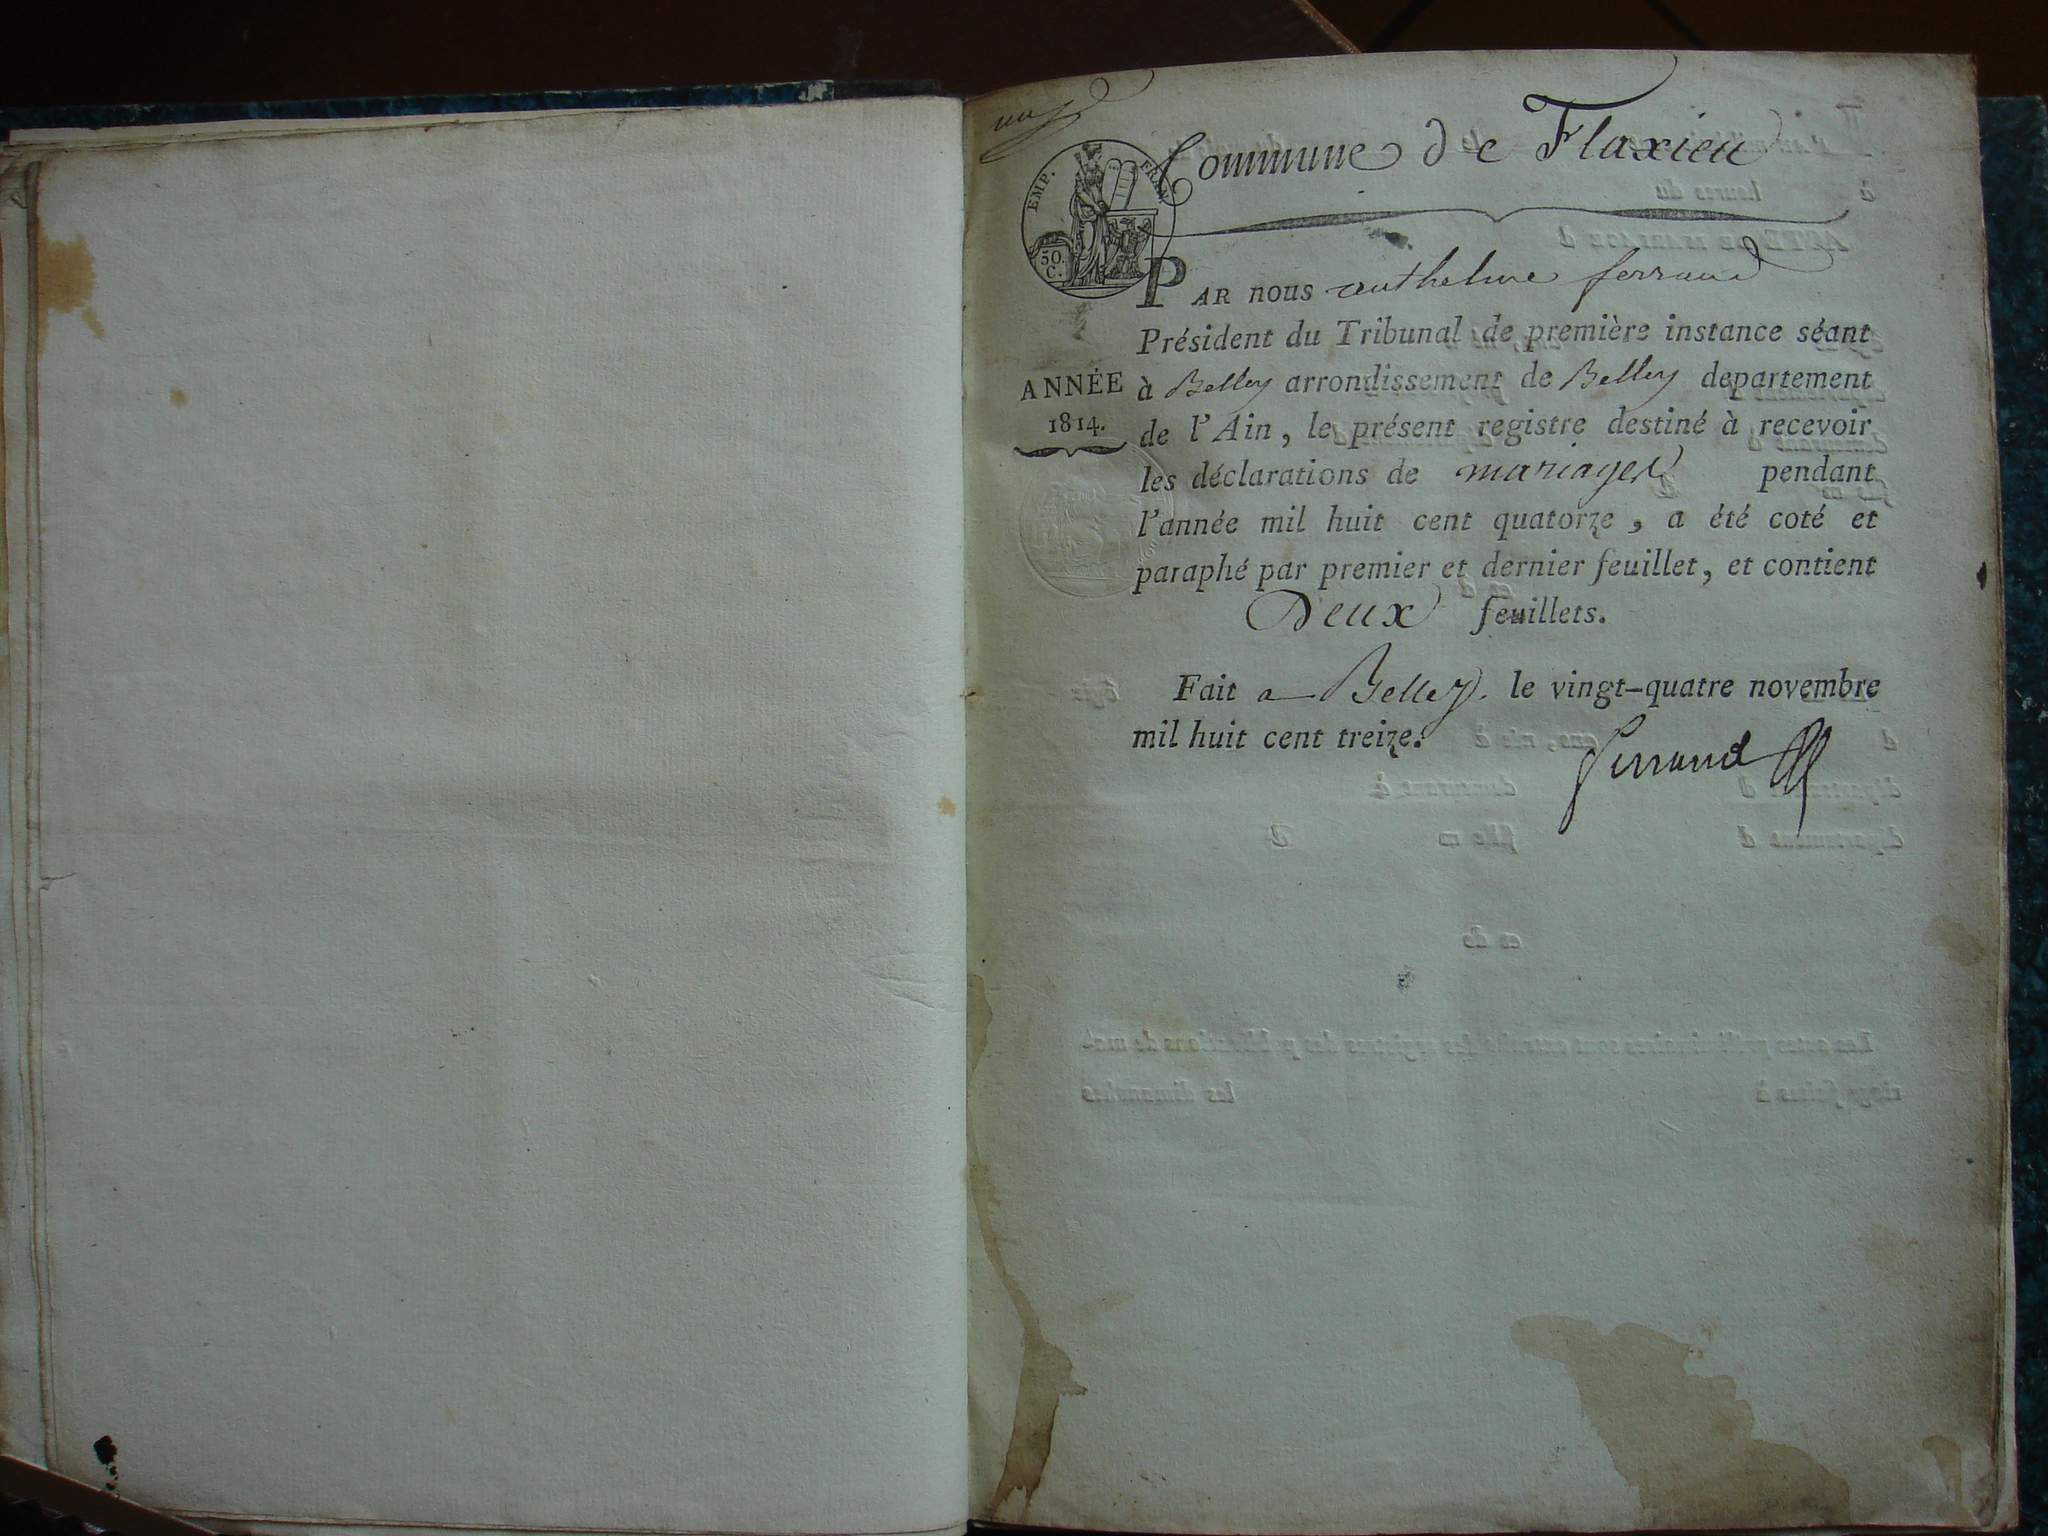 un
Commune de Flaxieu
EMP. FRAN.
50.
C.
PAR nous anthelme ferrand
Président du Tribunal de première instance séant
ANNÉE
1814.
à Belley arrondissement de Belley departement
de l'Ain, le présent registre destiné à recevoir
les déclarations de mariages pendant
l'année mil huit cent quatorze, a été coté et
paraphé par premier et dernier feuillet, et contient
Deux feuillets.
Fait a Belley. le vingt-quatre novembre
mil huit cent treize.
Ferrand